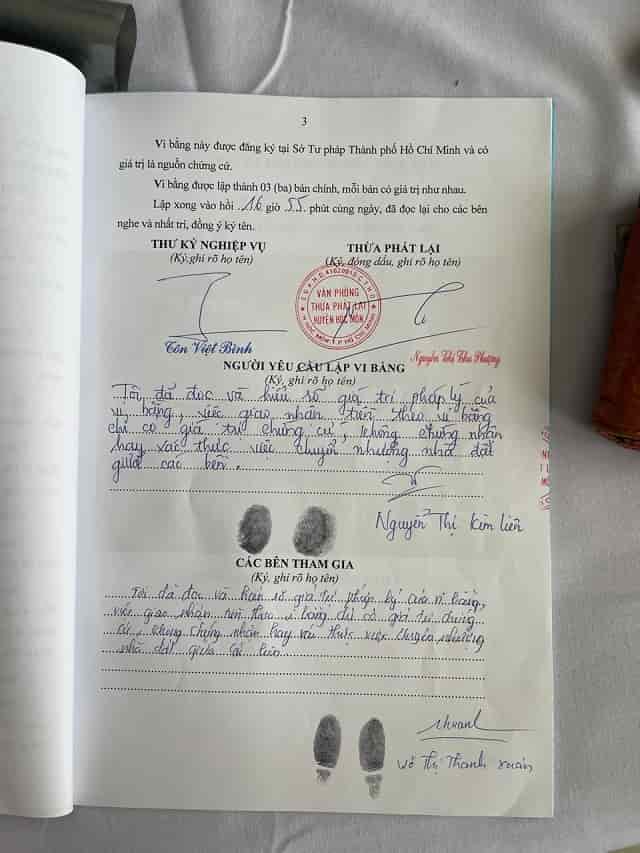 3
Vi bằng này được đăng ký tại Sở Tư pháp Thành phố Hồ Chí Minh và có
giá trị là nguồn chứng cứ.
Vi bằng được lập thành 03 (ba) bản chính, mỗi bản có giá trị như nhau.
Lập xong vào hồi 16 giờ 55 phút cùng ngày, đã đọc lại cho các bên
nghe và nhất trí, đồng ý ký tên.
THƯ KÝ NGHIỆP VỤ
(Ký, ghi rõ họ tên)
THỪA PHÁT LẠI
(Ký, đóng dấu, ghi rõ họ tên)
VĂN PHÒNG
THỪA PHÁT LẠI
HUYỆN HÓC MÔN
Tôn Việt Bình
Nguyễn Thị Thu Phượng
NGƯỜI YÊU CẦU LẬP VI BẰNG
(Ký, ghi rõ họ tên)
Tôi đã đọc và hiểu rõ giá trị pháp lý của
vi bằng, việc giao nhận tiền theo vi bằng
chỉ có giá trị chứng cứ, không chứng nhận
hay xác thực việc chuyển nhượng nhà đất
giữa các bên.
Nguyễn Thị Kim Liên
CÁC BÊN THAM GIA
(Ký, ghi rõ họ tên)
Tôi đã đọc và hiểu rõ giá trị pháp lý của vi bằng,
việc giao nhận tiền theo vi bằng chỉ có giá trị chứng
cứ, không chứng nhận hay xác thực việc chuyển nhượng
nhà đất giữa các bên
Võ Thị Thanh Xuân